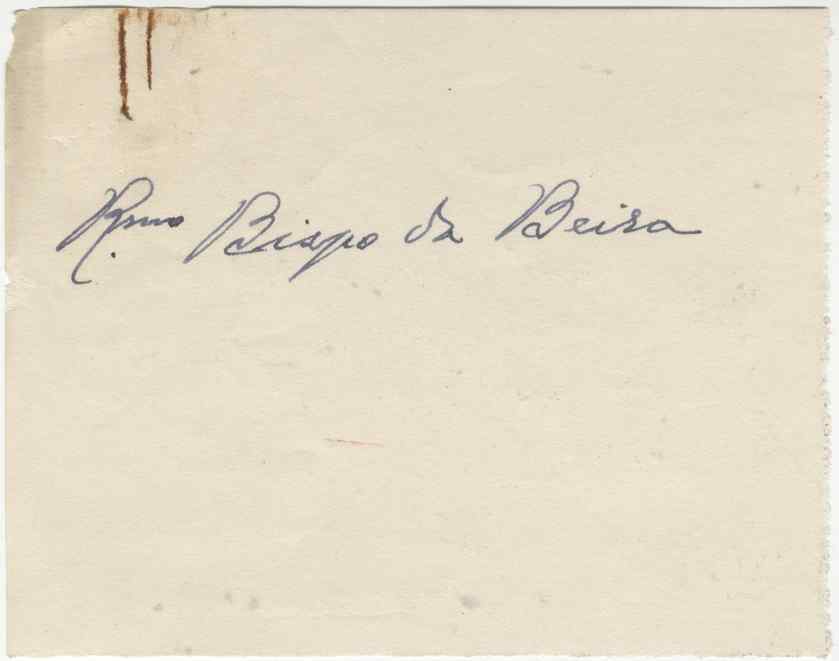 R.mo Bispo da Beira